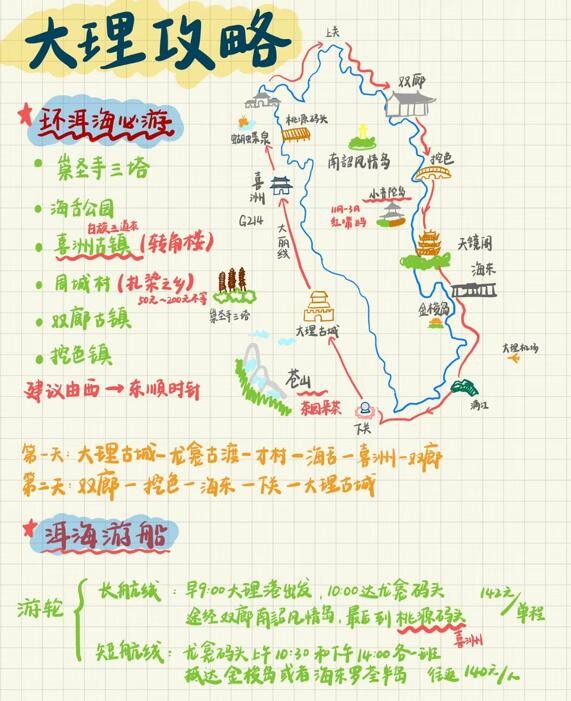 大理攻略
环洱海必游
崇圣寺三塔
海舌公园
白族三道茶
喜洲古镇(转角楼)
周城村(扎染之乡)
50元~200元不等
双廊古镇
挖色镇
建议由西→东顺时针
上关
双廊
蝴蝶泉
桃源码头
南诏风情岛
挖色
喜洲
小普陀岛
11月-3月
红嘴鸥
G214
大丽线
天镜阁
海东
崇圣寺三塔
大理古城
金梭岛
大理机场
苍山
茶园采茶
下关
满江
第一天:大理古城-龙龛古渡-才村-海舌-喜洲-双廊
第二天:双廊-挖色-海东-下关-大理古城
洱海游船
游轮
长航线:早9:00大理港出发,10:00达龙龛码头
途经双廊南诏风情岛,最后到桃源码头
142元/单程
喜洲
短航线:龙龛码头上午10:30和下午14:00各一班
抵达金梭岛或者海东罗荃半岛 往返140元/人